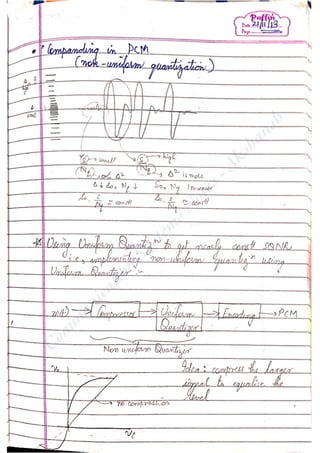 Puffin
Date 21/11/13
Page
• Companding in PCM
(non-uniform quantization)
Δ
small
S → small
S → high
Nq → α Δ²
Nq → Δ² is more
Δ ↓ so, Nq ↓
So, Nq Increase
So. S/Nq = constt
So. S/Nq = constt
Using Uniform Quantizⁿ to get nearly constt SQNR
i.e., implementing non-uniform Quantizⁿ using
Uniform Quantizer -
m(t) → Compressor → Uniform Quantizer → Encoding → PCM
Non uniform Quantizer
Idea: compress the larger
signal to equalise the
level
→ no compression